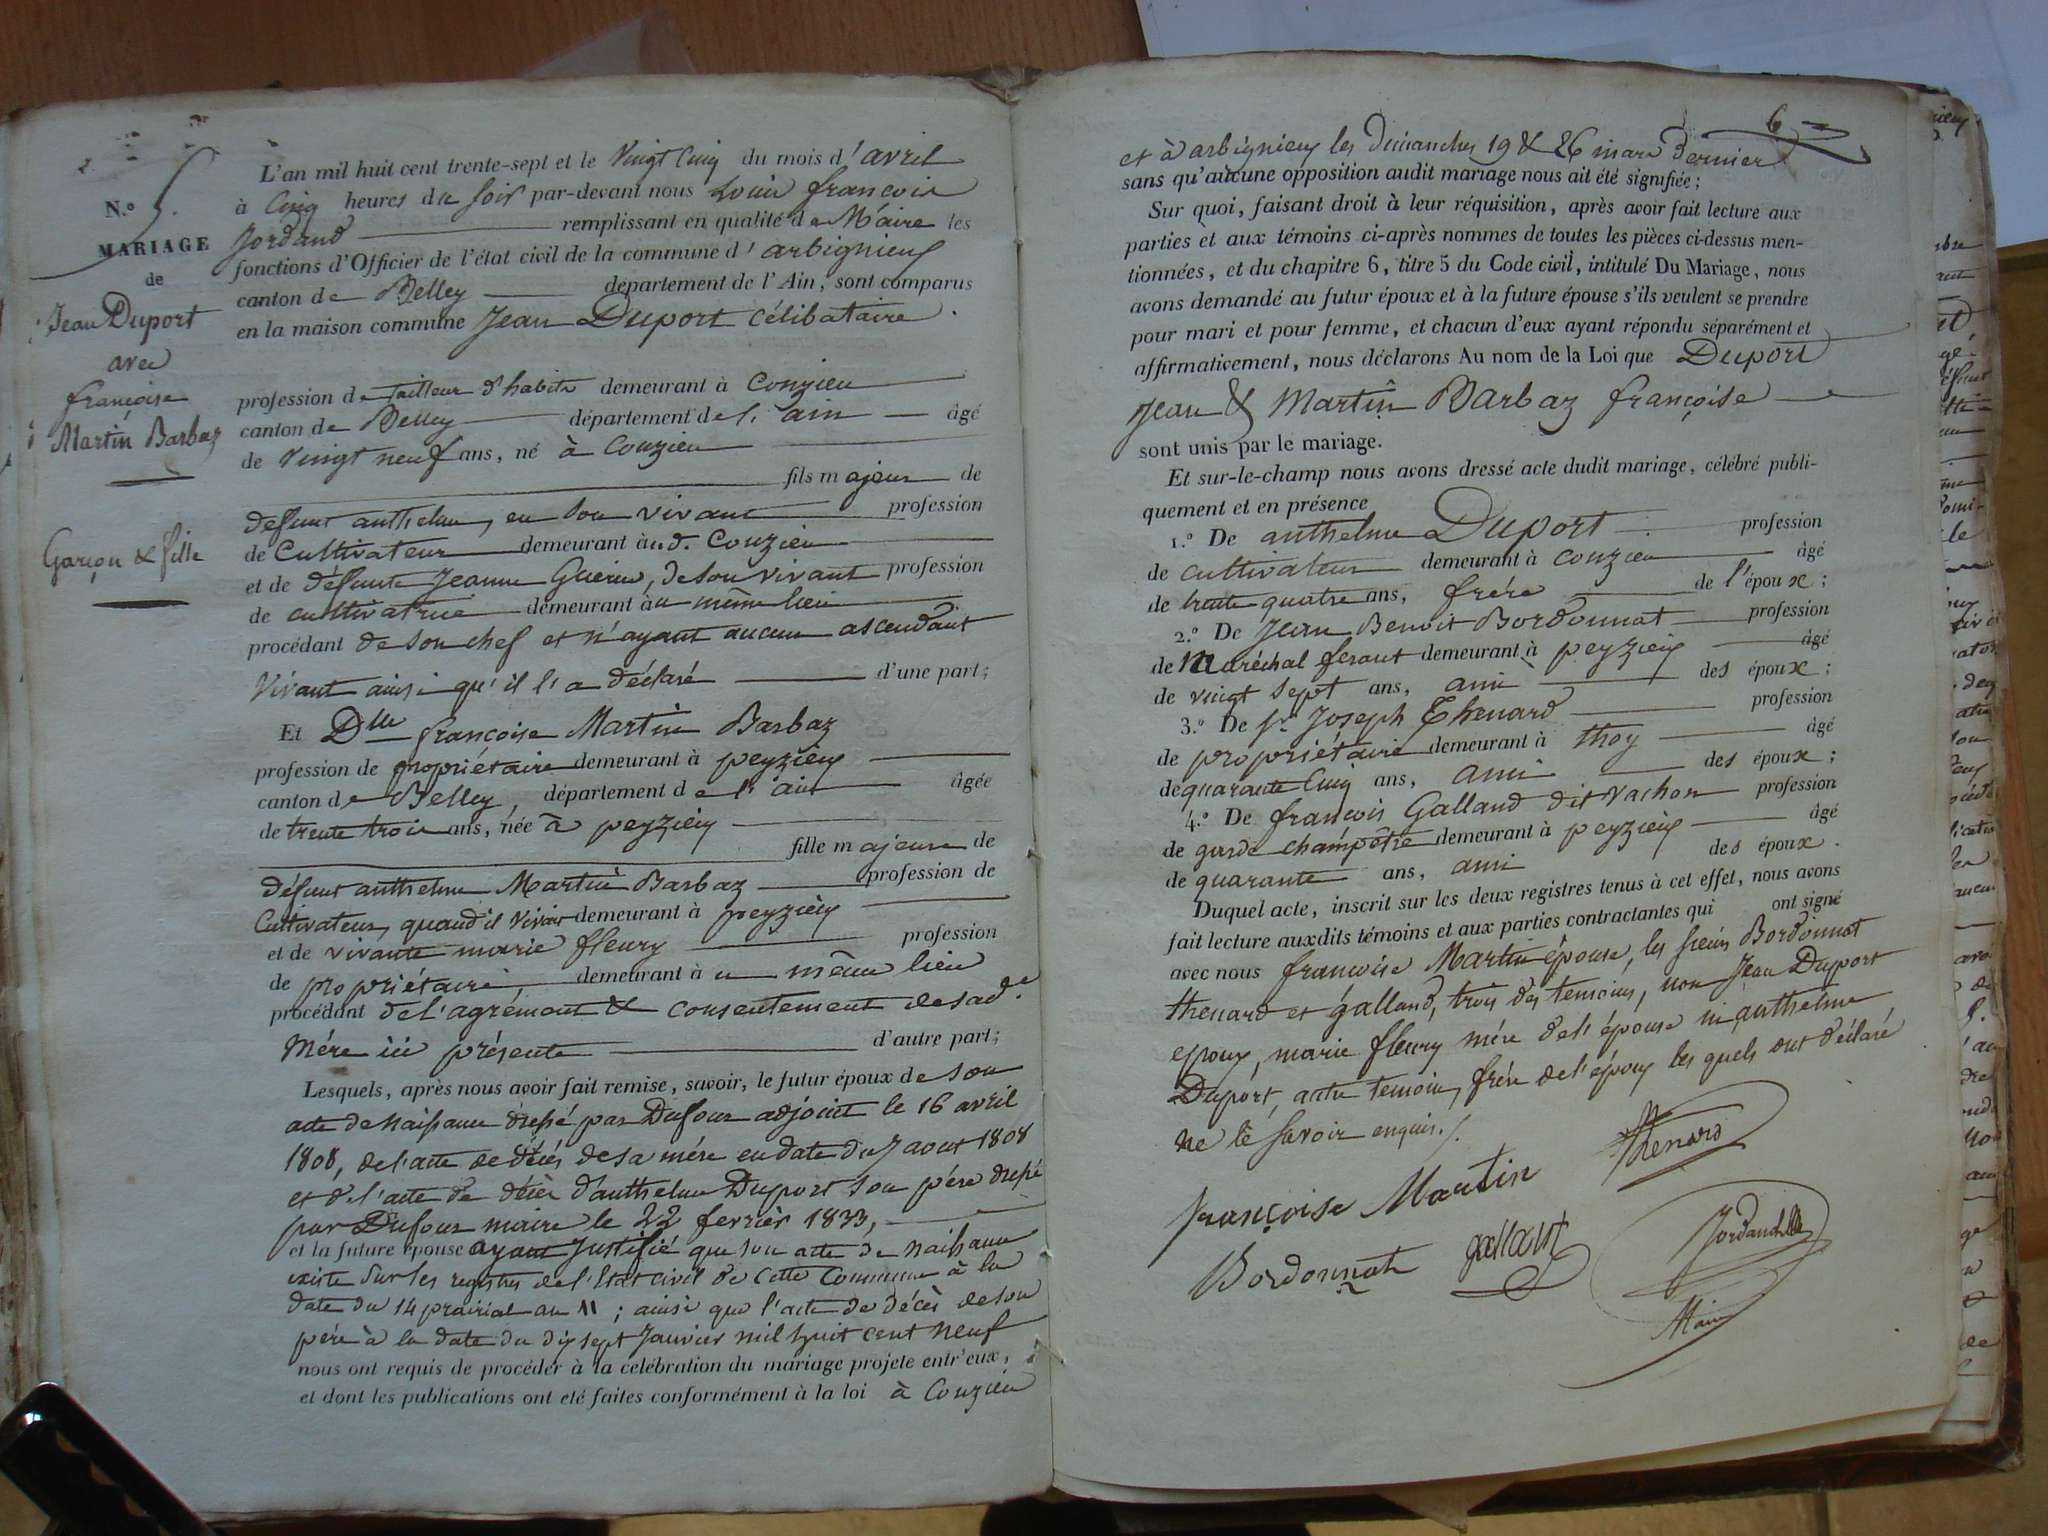 N.º 5.
MARIAGE
de
Jean Duport
avec
françoise
Martin Barbaz
Garçon & fille
L'an mil huit cent trente-sept et le vingt cinq du mois d'avril
à cinq heures du soir par-devant nous Louis françois
Jordand remplissant en qualité de Maire les
fonctions d'Officier de l'état civil de la commune d'arbignieu
canton de Belley département de l'Ain, sont comparus
en la maison commune Jean Duport célibataire.
profession de tailleur d'habits demeurant à Conzieu
canton de Belley département de l'ain âgé
de vingt neuf ans, né à Conzieu
fils majeur de
défunt anthelme, en son vivant profession
de Cultivateur demeurant aud. Conzieu
et de défunte Jeanne Guerin, de son vivant profession
de cultivatrice demeurant au même lieu
procédant de son chef et n'ayant aucun ascendant
Vivant ainsi qu'il l'a déclaré d'une part;
Et Dlle françoise Martin Barbaz
profession de propriétaire demeurant à peyzieu
canton de Belley, département de l'ain âgée
de trente trois ans, née à peyzieu
fille majeure de
défunt anthelme Martin Barbaz profession de
Cultivateur, quand il vivait demeurant à peyzieu
et de vivante marie fleury profession
de propriétaire, demeurant au même lieu
procédant de l'agrément & consentement de sad.e
Mére ici présente d'autre part;
Lesquels, après nous avoir fait remise, savoir, le futur époux de son
acte de naissance dressé par Dufour adjoint le 16 avril
1808, de l'acte de décès de sa mére en date du 7 aout 1808
et de l'acte de décès d'anthelme Duport son pére dressé
par Dufour maire le 22 fevrier 1833,
et la future épouse ayant Justifié que son acte de naissance
existe sur les registres de l'Etat civil de cette Commune à la
date du 14 prairial an 11; ainsi que l'acte de décès de son
pére à la date du dix sept Janvier mil huit cent neuf
nous ont requis de procéder à la celébration du mariage projete entr'eux,
et dont les publications ont eté faites conformément à la loi à Conzieu
6
et à arbignieu les dimanches 19 & 26 mars dernier
sans qu'aucune opposition audit mariage nous ait été signifiée;
Sur quoi, faisant droit à leur réquisition, après avoir fait lecture aux
parties et aux témoins ci-après nommes de toutes les pièces ci-dessus men-
tionnées, et du chapitre 6, titre 5 du Code civil, intitulé Du Mariage, nous
avons demandé au futur époux et à la future épouse s'ils veulent se prendre
pour mari et pour femme, et chacun d'eux ayant répondu séparément et
affirmativement, nous déclarons Au nom de la Loi que Duport
Jean & Martin Barbaz françoise
sont unis par le mariage.
Et sur-le-champ nous avons dressé acte dudit mariage, célébré publi-
quement et en présence
1.º De anthelme Duport profession
de cultivateur demeurant à conzieu âgé
de trente quatre ans, frére de l'époux;
2.º De Jean Benoit Bordonnat profession
de Maréchal ferant demeurant à peyzieu âgé
de vingt sept ans, ami des époux;
3.º De Sr Joseph Thenard profession
de propriétaire demeurant à thoy âgé
de quarante Cinq ans, ami des époux;
4.º De françois Galland dit Vachon profession
de garde champêtre demeurant à peyzieu âgé
de quarante ans, ami des époux.
Duquel acte, inscrit sur les deux registres tenus à cet effet, nous avons
fait lecture auxdits témoins et aux parties contractantes qui ont signé
avec nous françoise Martin épouse, les sieurs Bordonnat
thenard et galland, trois des temoins, non Jean Duport
epoux, marie fleury mére de l'épouse ni anthelme
Duport, autre temoin, frére de l'époux les quels ont déclaré
ne le savoir enquis./.
françoise Martin
Thenard
Bordonnat
galland
Jordand
Maire